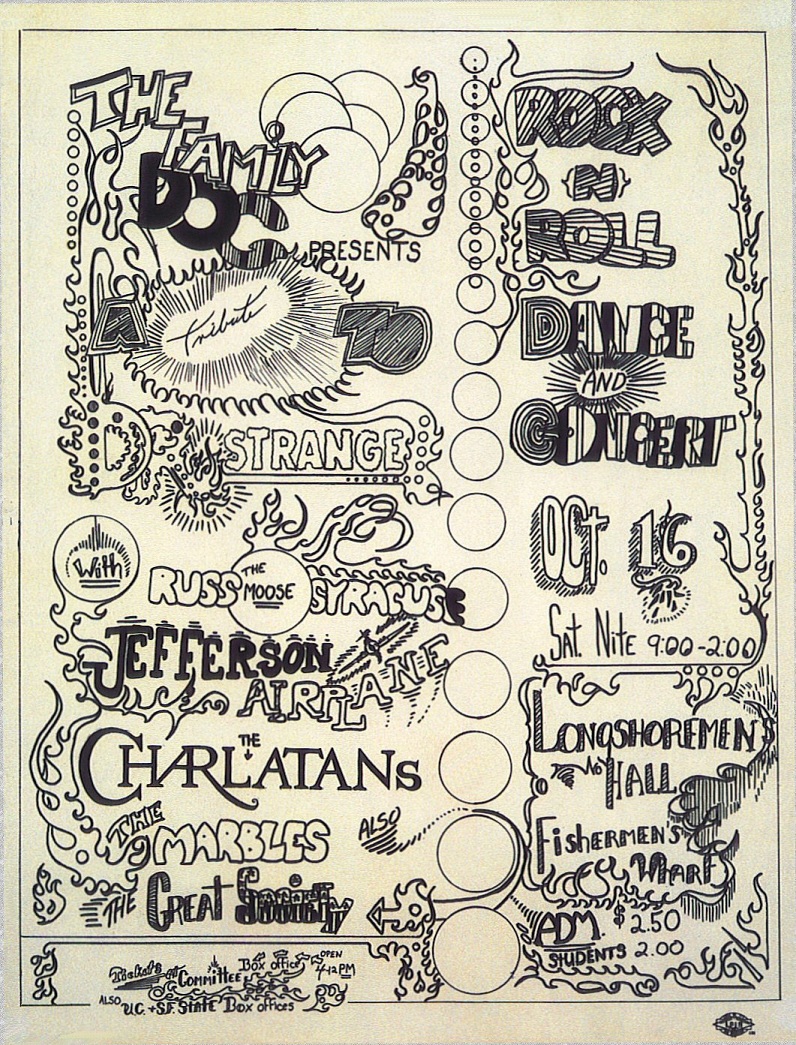 THE
FAMILY
DOG
PRESENTS
A tribute TO
Dr. STRANGE
With
RUSS THE MOOSE SYRACUSE
JEFFERSON
AIRPLANE
THE
CHARLATANS
THE
MARBLES
ALSO
THE GREAT Society
Tickets at Committee Box office OPEN 4-12 PM
ALSO U.C. + S.F. STATE Box offices
ROCK
N
ROLL
DANCE
AND
CONCERT
OCT. 16
SAT. NITE 9:00-2:00
LONGSHOREMEN'S
HALL
FISHERMEN'S
WHARF
ADM. $2.50
STUDENTS 2.00